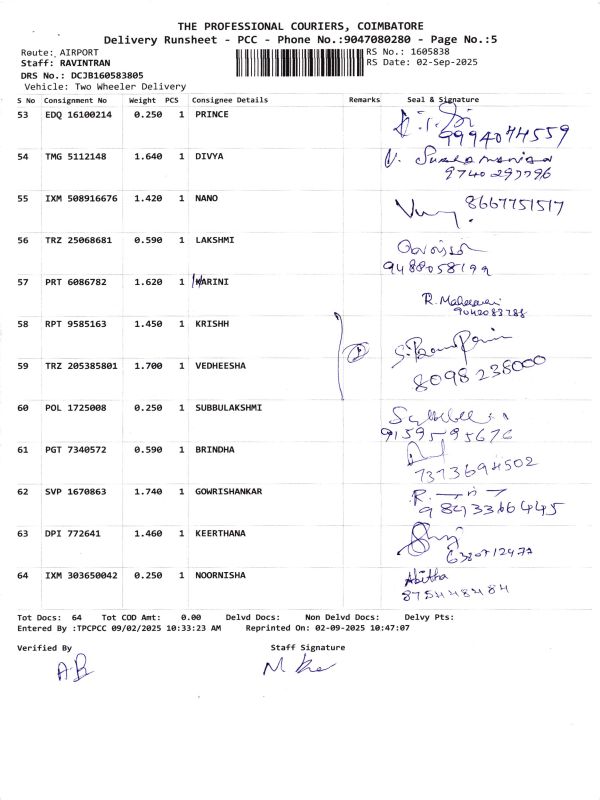 THE PROFESSIONAL COURIERS, COIMBATORE
Delivery Runsheet - PCC - Phone No.:9047080280 - Page No.:5
Route: AIRPORT RS No.: 1605838
Staff: RAVINTRAN RS Date: 02-Sep-2025
DRS No.: DCJB160583805
Vehicle: Two Wheeler Delivery
S No Consignment No Weight PCS Consignee Details Remarks Seal & Signature
53 EDQ 16100214 0.250 1 PRINCE
9994074559
54 TMG 5112148 1.640 1 DIVYA V.
9740297796
55 IXM 508916676 1.420 1 NANO 8667751517
56 TRZ 25068681 0.590 1 LAKSHMI
9488058199
57 PRT 6086782 1.620 1 KARINI
R. Maheswari
58 RPT 9585163 1.450 1 KRISHH
59 TRZ 205385801 1.700 1 VEDHEESHA
8098238000
60 POL 1725008 0.250 1 SUBBULAKSHMI
9159595676
61 PGT 7340572 0.590 1 BRINDHA
7373694502
62 SVP 1670863 1.740 1 GOWRISHANKAR R.
9843366445
63 DPI 772641 1.460 1 KEERTHANA
64 IXM 303650042 0.250 1 NOORNISHA Abitha
8754484484
Tot Docs: 64 Tot COD Amt: 0.00 Delvd Docs: Non Delvd Docs: Delvy Pts:
Entered By :TPCPCC 09/02/2025 10:33:23 AM Reprinted On: 02-09-2025 10:47:07
Verified By Staff Signature